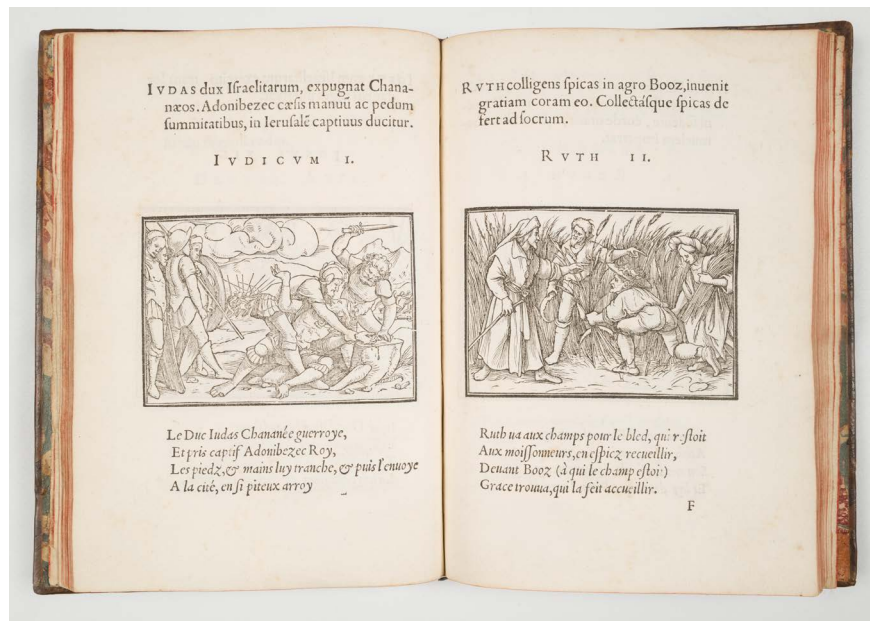 IVDAS dux Iſraelitarum, expugnat Chana-
næos. Adonibezec cæſis manuũ ac pedum
ſummitatibus, in Ieruſalẽ captiuus ducitur.
IVDICVM I.
Le Duc Iudas Chananée guerroye,
Et pris captif Adonibezec Roy,
Les piedz, & mains luy tranche, & puis l'enuoye
A la cité, en ſi piteux arroy
RVTH colligens ſpicas in agro Booz, inuenit
gratiam coram eo. Collectáſque ſpicas de
fert ad ſocrum.
RVTH II.
Ruth ua aux champs pour le bled, qui reſtoit
Aux moiſſonneurs, en eſpicz recueillir,
Deuant Booz (à qui le champ eſtoit)
Grace trouua, qui la feit accueillir.
F